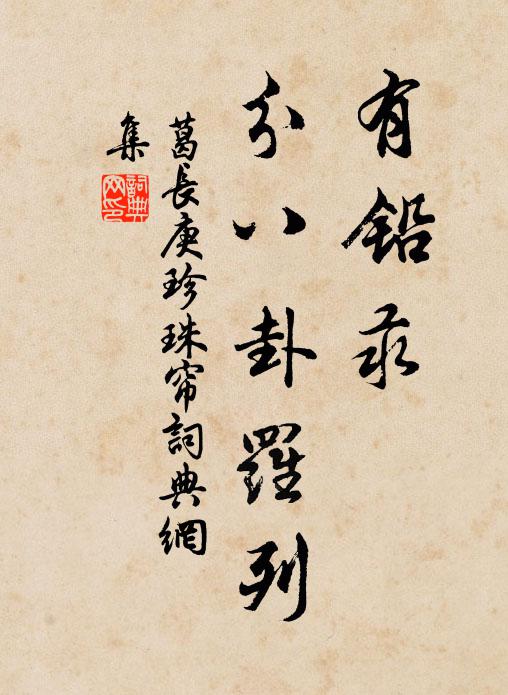 有鉛汞
分八卦羅列
葛長庚珍珠帘詞典網
集
詞典網印